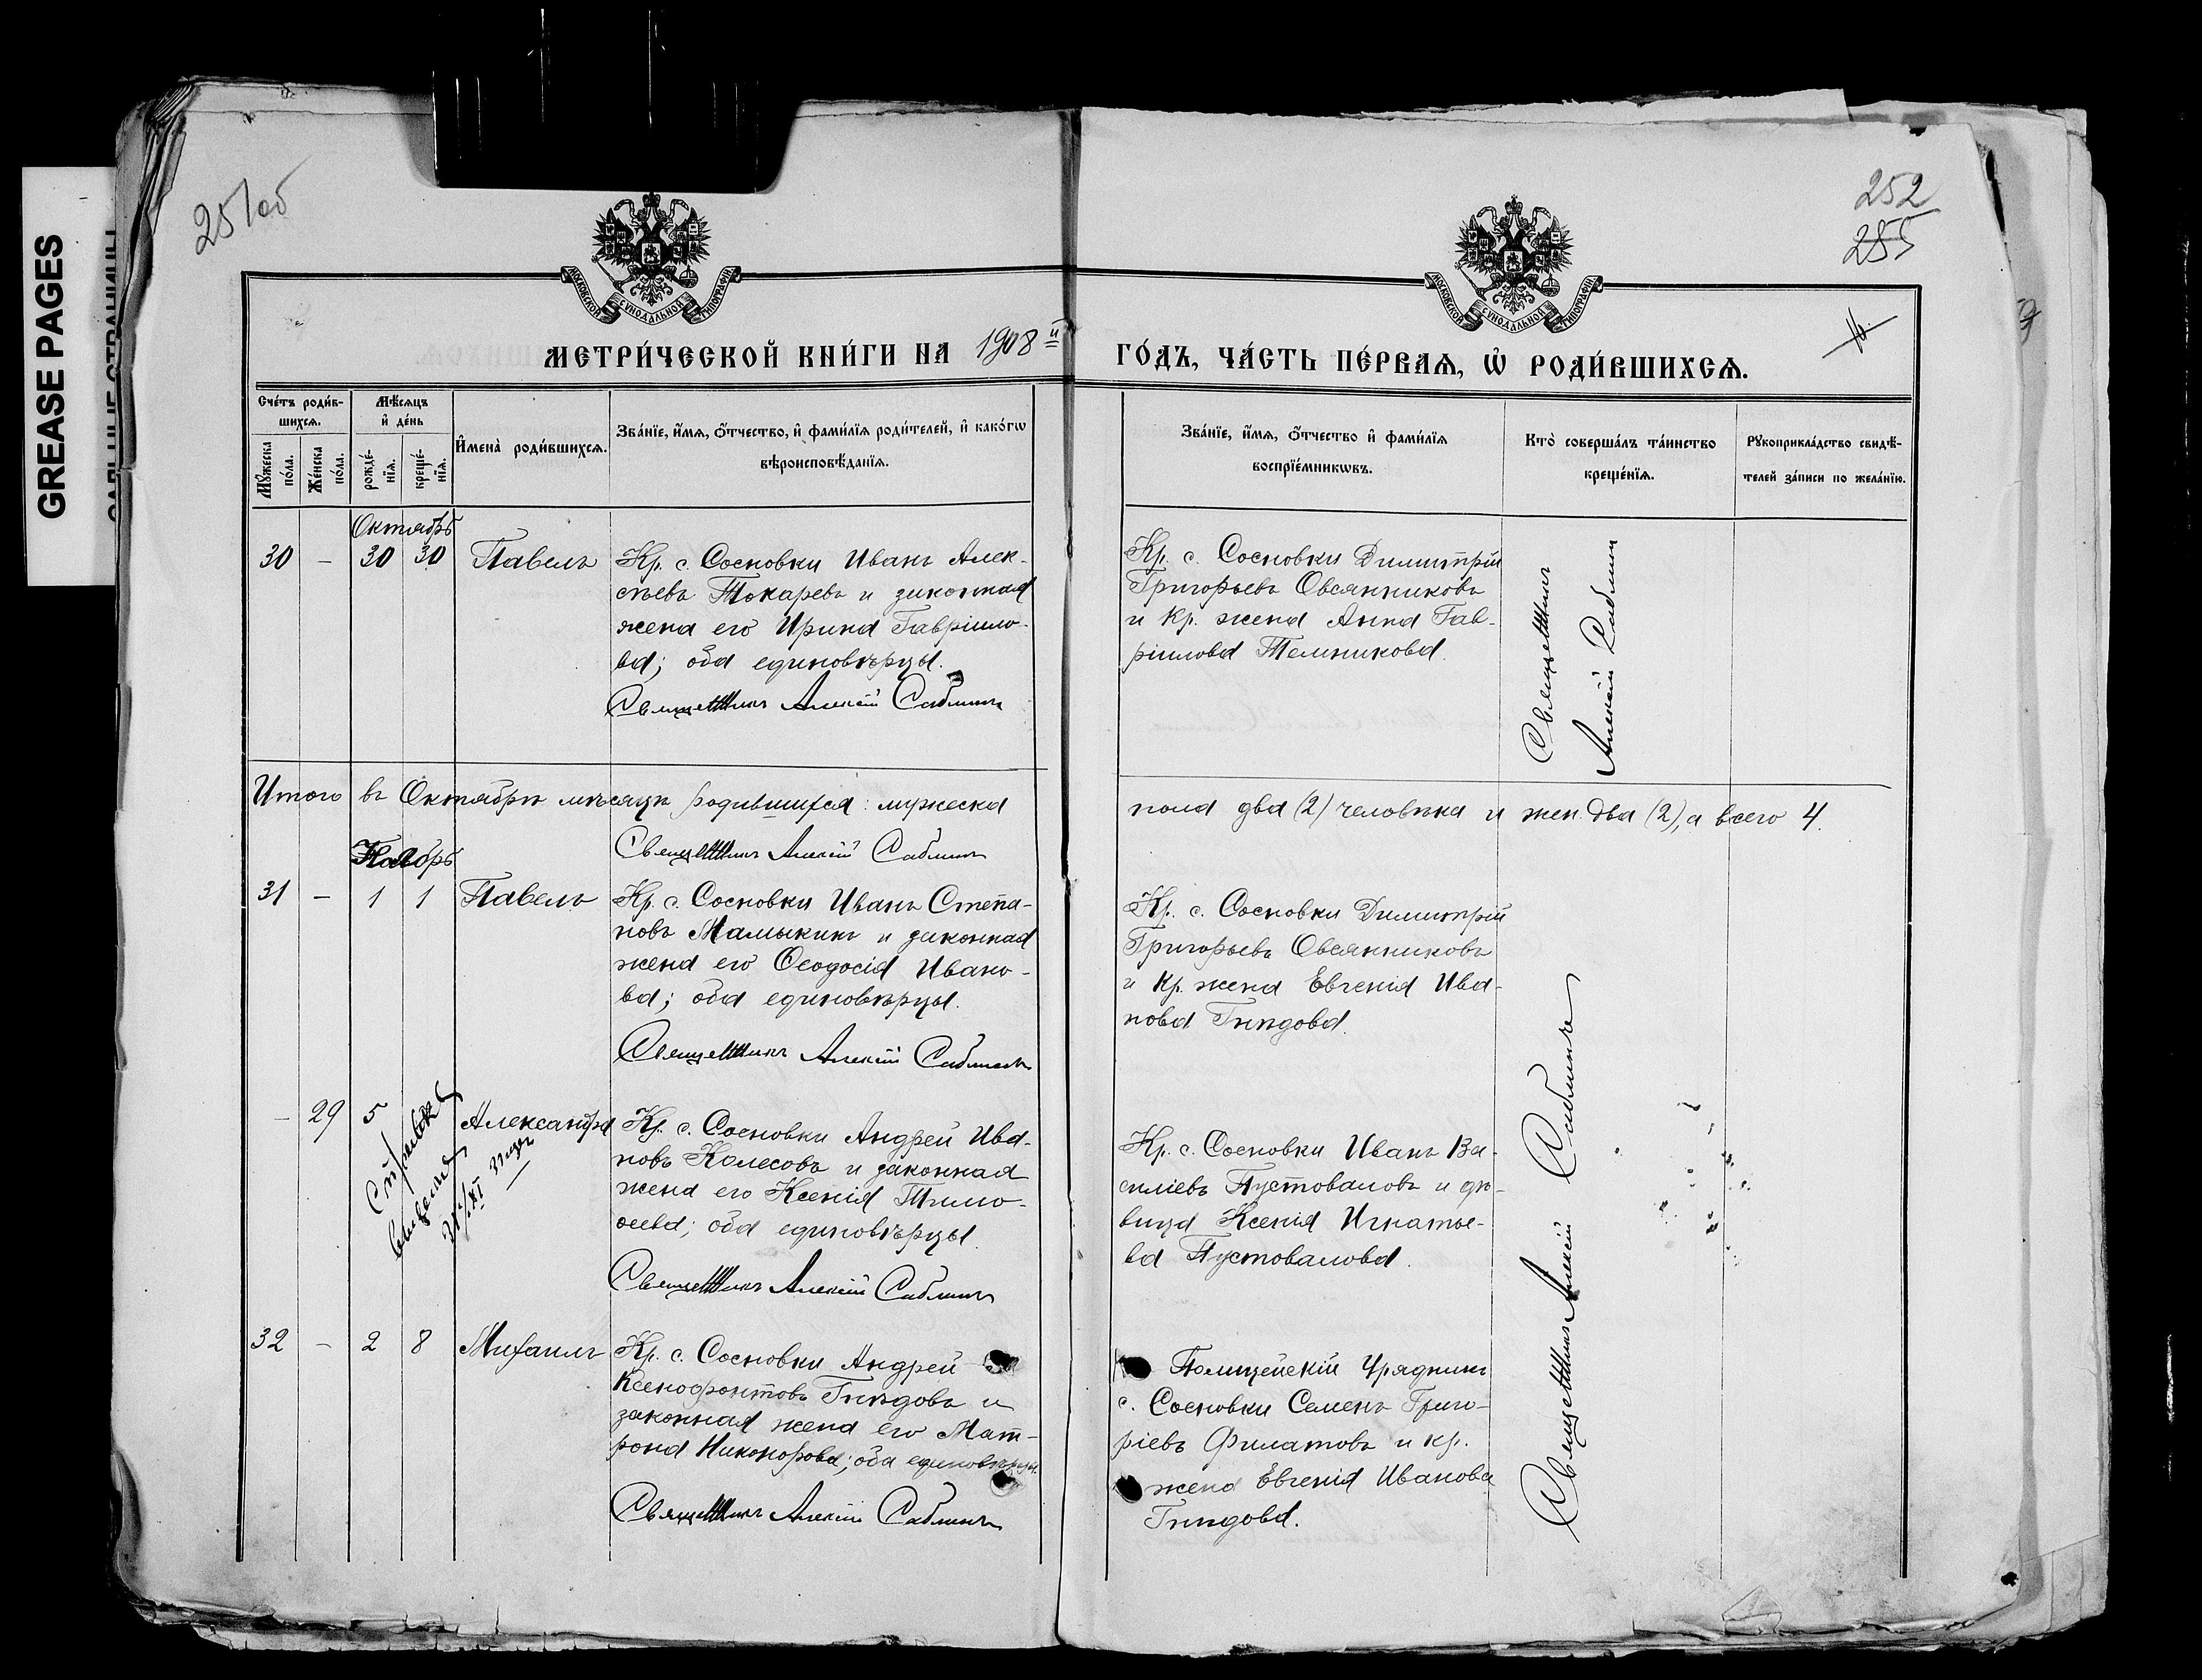 GREASE PAGES
251об
252
255
МОСКОВСКОЙ СѴНОДАЛЬНОЙ ТИПОГРАФІИ
МОСКОВСКОЙ СѴНОДАЛЬНОЙ ТИПОГРАФІИ
МЕТРИ́ЧЕСКОЙ КНИ́ГИ НА 1908й ГО́ДЪ, ЧА́СТЬ ПЕ́РВАѦ, Ѡ҆ РОДИ́ВШИХСѦ.
Сче́тъ роди́в-
шихсѧ.
Мꙋ́жеска по́ла.
Же́нска по́ла.
Мѣ́сѧцъ
и҆ де́нь
рожде́-
нїѧ.
креще́-
нїѧ.
И҆мена̀ роди́вшихсѧ.
Зва́нїе, и҆́мѧ, ѻ҆́тчество, и҆ фами́лїѧ роди́телей, и҆ како́гѡ
вѣроисповѣ́данїѧ.
Зва́нїе, и҆́мѧ, ѻ҆́тчество и҆ фами́лїѧ
воспрїе́мникѡвъ.
Кто̀ соверша́лъ та́инство
креще́нїѧ.
Рꙋкоприкла́дство свидѣ́-
телей за́писи по жела́нїю.
Октябрь
30 – 30 30 Павелъ
Кр. с. Сосновки Иванъ Алек-
сѣевъ Токаревъ и законная
жена его Ирина Гавріило-
ва; оба единовѣрцы.
Священникъ Алексій Саблинъ
Кр. с. Сосновки Димитрій
Григорьевъ Овсянниковъ
и кр. жена Анна Гав-
ріилова Темникова.
Священникъ
Алексій Саблин
Итого въ Октябрѣ мѣсяцѣ родившихся: мужеска пола два (2) человѣка и жен. два (2), а всего 4.
Священникъ Алексій Саблинъ
Ноябрь
31 – 1 1 Павелъ
Кр. с. Сосновки Иванъ Степа-
новъ Мамыкинъ и законная
жена его Ѳеодосія Ивано-
ва; оба единовѣрцы.
Священникъ Алексій Саблинъ
Кр. с. Сосновки Димитрій
Григорьевъ Овсянниковъ
и кр. жена Евгенія Ива-
нова Гнѣдова.
– 29 5 Александра
Справка
выдана
Кр. с. Сосновки Андрей Ива-
новъ Колесовъ и законная
жена его Ксенія Тимо-
ѳеева; оба единовѣрцы.
Священникъ Алексій Саблинъ
Кр. с. Сосновки Иванъ Ва-
силіевъ Пустоваловъ и дѣ-
вица Ксенія Игнатье-
ва Пустовалова.
32 – 2 8 Михаилъ
Кр. с. Сосновки Андрей
Ксенофонтовъ Гнѣдовъ и
законная жена его Мат-
рона Никонорова; оба единовѣрцы.
Священникъ Алексій Саблинъ
Полицейскій Урядникъ
с. Сосновки Семенъ Григо-
ріевъ Филатовъ и кр.
жена Евгенія Иванова
Гнѣдова.
Священникъ Алексій Саблинъ